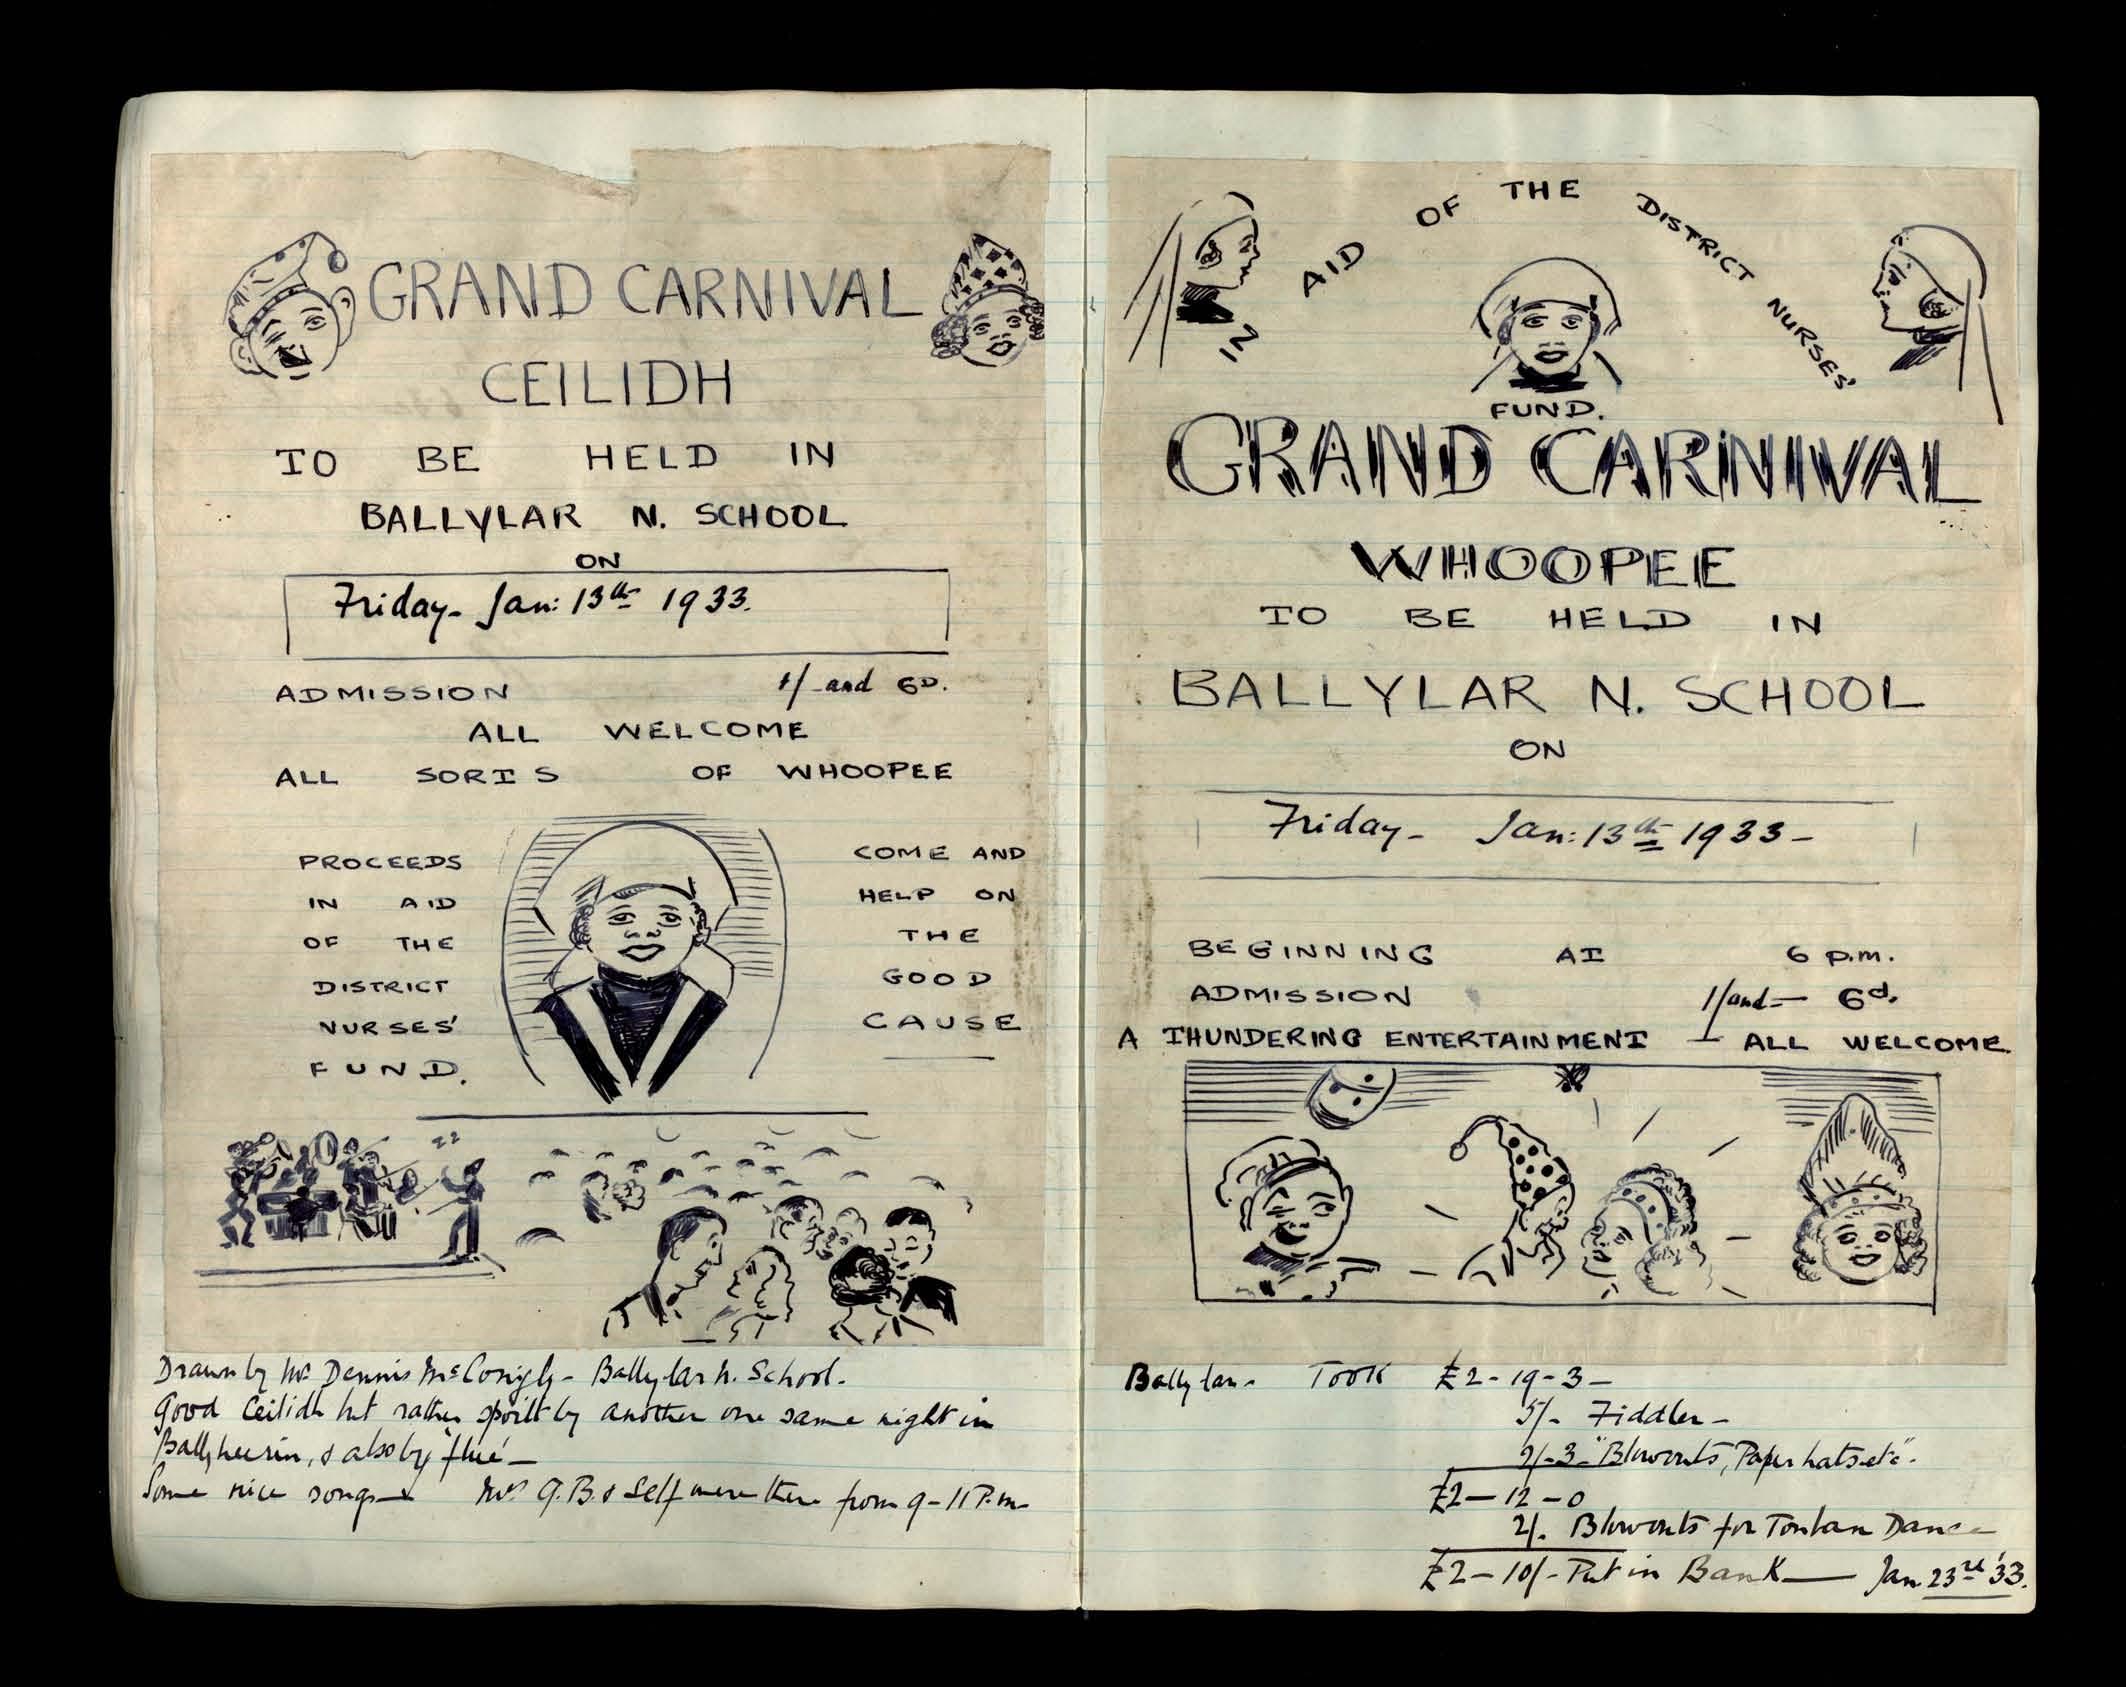 GRAND CARNIVAL
CEILIDH
TO BE HELD IN
BALLYLAR N. SCHOOL
ON
Friday - Jan: 13th 1933.
ADMISSION 1/- and 6D.
ALL WELCOME
ALL SORTS OF WHOOPEE
PROCEEDS
IN AID
OF THE
DISTRICT
NURSES'
FUND.
COME AND
HELP ON
THE
GOOD
CAUSE
Drawn by Mr Dennis McConigly - Ballylar N. School.
Good Ceilidh but rather spoilt by another one same night in
Ballyheerin, & also by 'flue' -
Some nice songs - Mrs G.B. & Self were there from 9 - 11 P.m.
IN AID OF THE DISTRICT NURSES'
FUND.
GRAND CARNIVAL
WHOOPEE
TO BE HELD IN
BALLYLAR N. SCHOOL
ON
Friday - Jan: 13th 1933 -
BEGINNING AT 6 p.m.
ADMISSION 1/ and - 6d.
A THUNDERING ENTERTAINMENT - ALL WELCOME.
Ballylar - TOOK £2 - 19 - 3 -
5/- Fiddler -
2/-3 - "Blowouts, Paper hats etc".
£2 - 12 - 0
2/. Blowouts for Tonban Dance
£2 - 10/- Put in Bank - Jan 23rd '33.